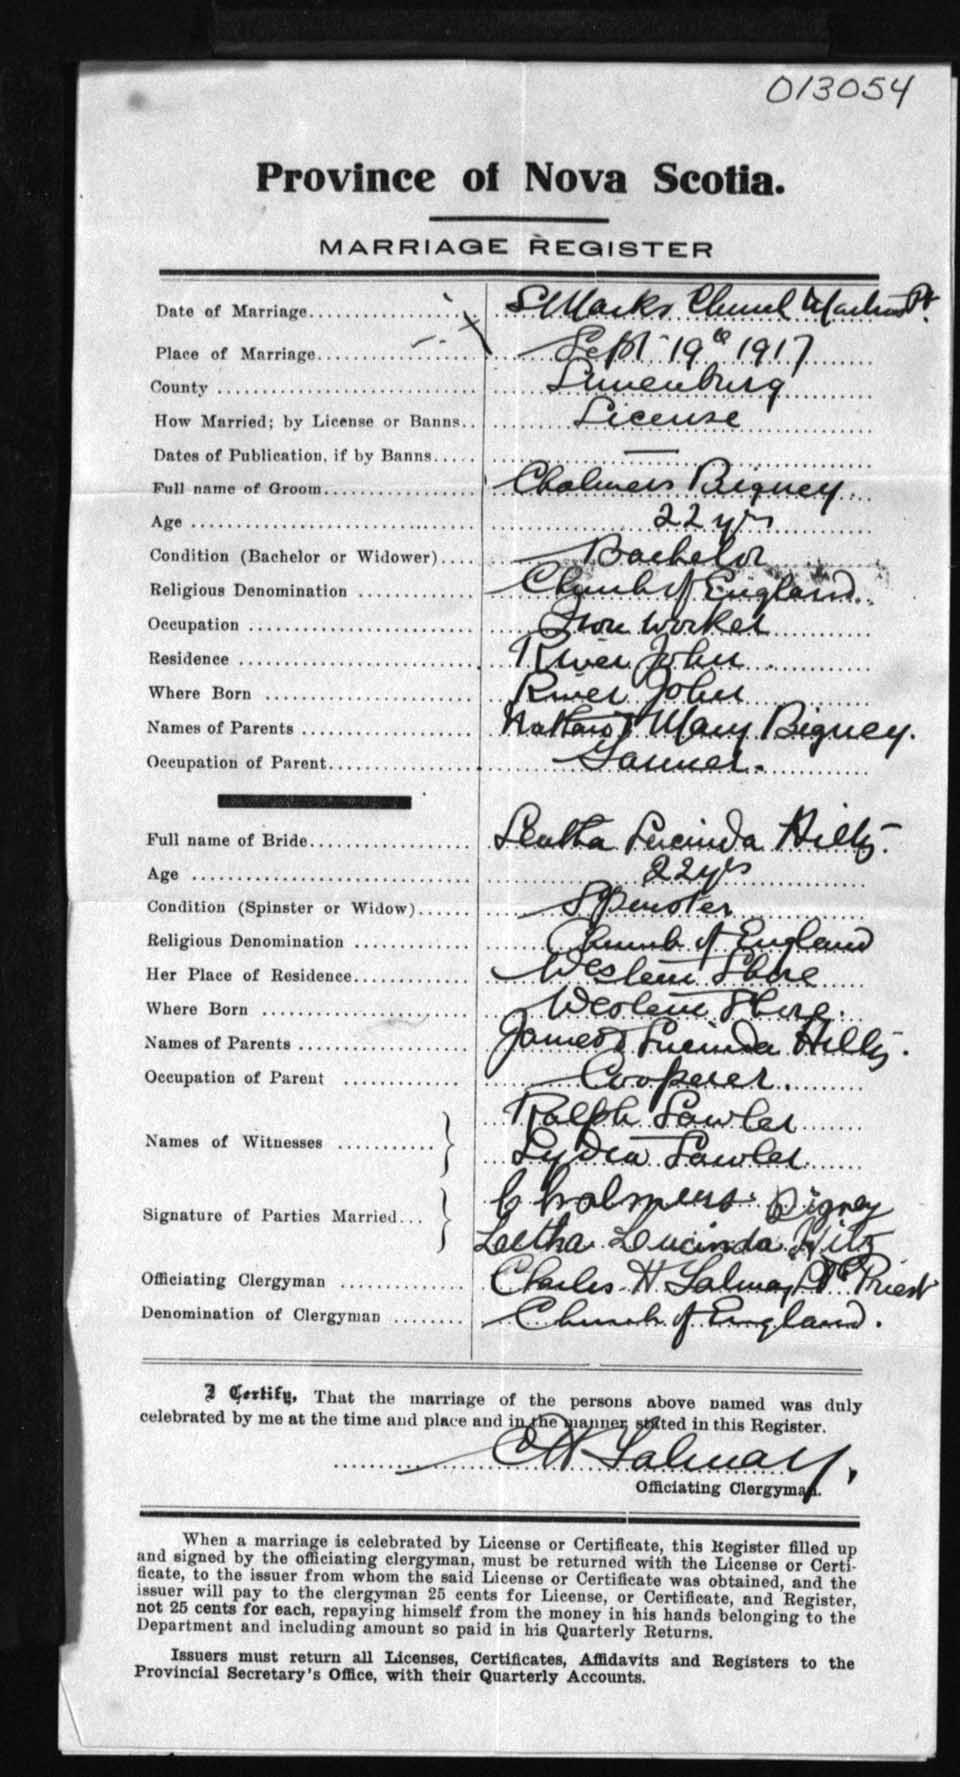 013054
Province of Nova Scotia.
MARRIAGE REGISTER
Date of Marriage St Marks Church Martins Pt.
Place of Marriage Sept 19th 1917
County Lunenburg
How Married; by License or Banns License
Dates of Publication, if by Banns —
Full name of Groom Chalmers Bigney
Age 22 yrs
Condition (Bachelor or Widower) Bachelor
Religious Denomination Church of England
Occupation Iron Worker
Residence River John
Where Born River John
Names of Parents Nathan & Mary Bigney.
Occupation of Parent Farmer.
Full name of Bride Leatha Lucinda Hiltz
Age 22 yrs
Condition (Spinster or Widow) Spinster
Religious Denomination Church of England
Her Place of Residence Western Shore
Where Born Western Shore.
Names of Parents James & Lucinda Hiltz.
Occupation of Parent Cooperer.
Names of Witnesses Ralph Lawler
Lydia Lawler
Signature of Parties Married Chalmers Bigney
Leetha Lucinda Hiltz
Officiating Clergyman Charles H Talmay Priest
Denomination of Clergyman Church of England.
I Certify, That the marriage of the persons above named was duly
celebrated by me at the time and place and in the manner stated in this Register.
CH Talmay.
Officiating Clergyman.
When a marriage is celebrated by License or Certificate, this Register filled up
and signed by the officiating clergyman, must be returned with the License or Certi-
ficate, to the issuer from whom the said License or Certificate was obtained, and the
issuer will pay to the clergyman 25 cents for License, or Certificate, and Register,
not 25 cents for each, repaying himself from the money in his hands belonging to the
Department and including amount so paid in his Quarterly Returns.
Issuers must return all Licenses, Certificates, Affidavits and Registers to the
Provincial Secretary's Office, with their Quarterly Accounts.